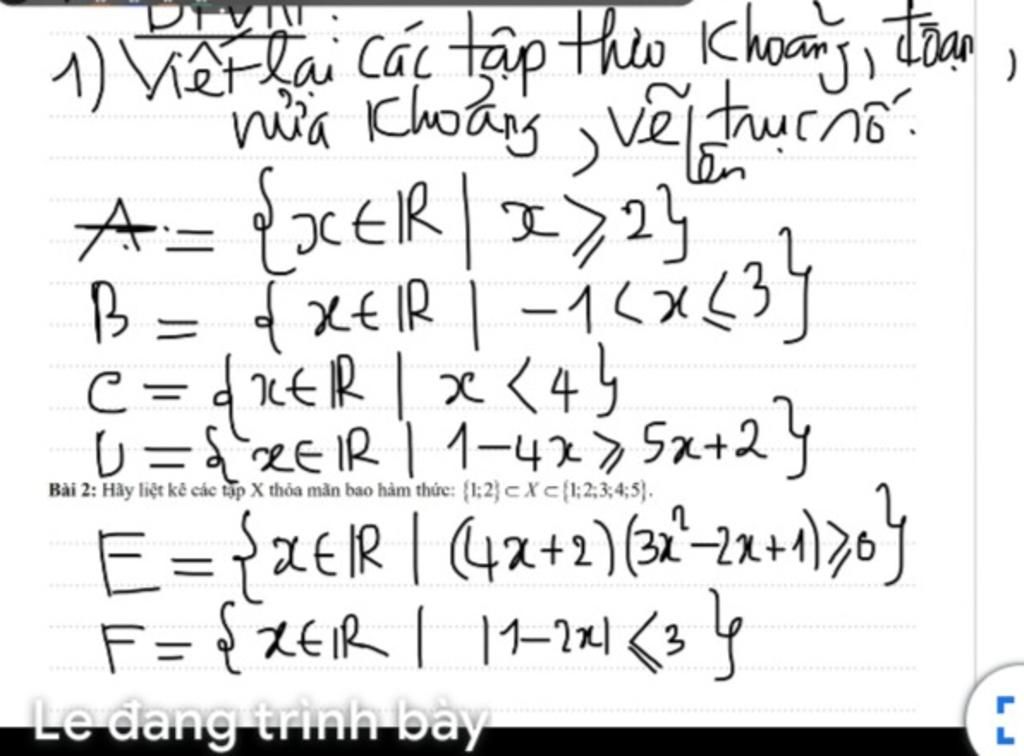 1) Viết lại các tập theo khoảng, đoạn,
nửa khoảng, vẽ lên trục số.
A = {x ∈ ℝ | x ⩾ 2}
B = {x ∈ ℝ | -1 < x ≤ 3}
C = {x ∈ ℝ | x < 4}
D = {x ∈ ℝ | 1-4x ⩾ 5x+2}
Bài 2: Hãy liệt kê các tập X thỏa mãn bao hàm thức: {1;2} ⊂ X ⊂ {1;2;3;4;5}.
E = {x ∈ ℝ | (4x+2)(3x²-2x+1) ⩾ 0}
F = {x ∈ ℝ | |1-2x| ⩽ 3}
Le đang trình bày